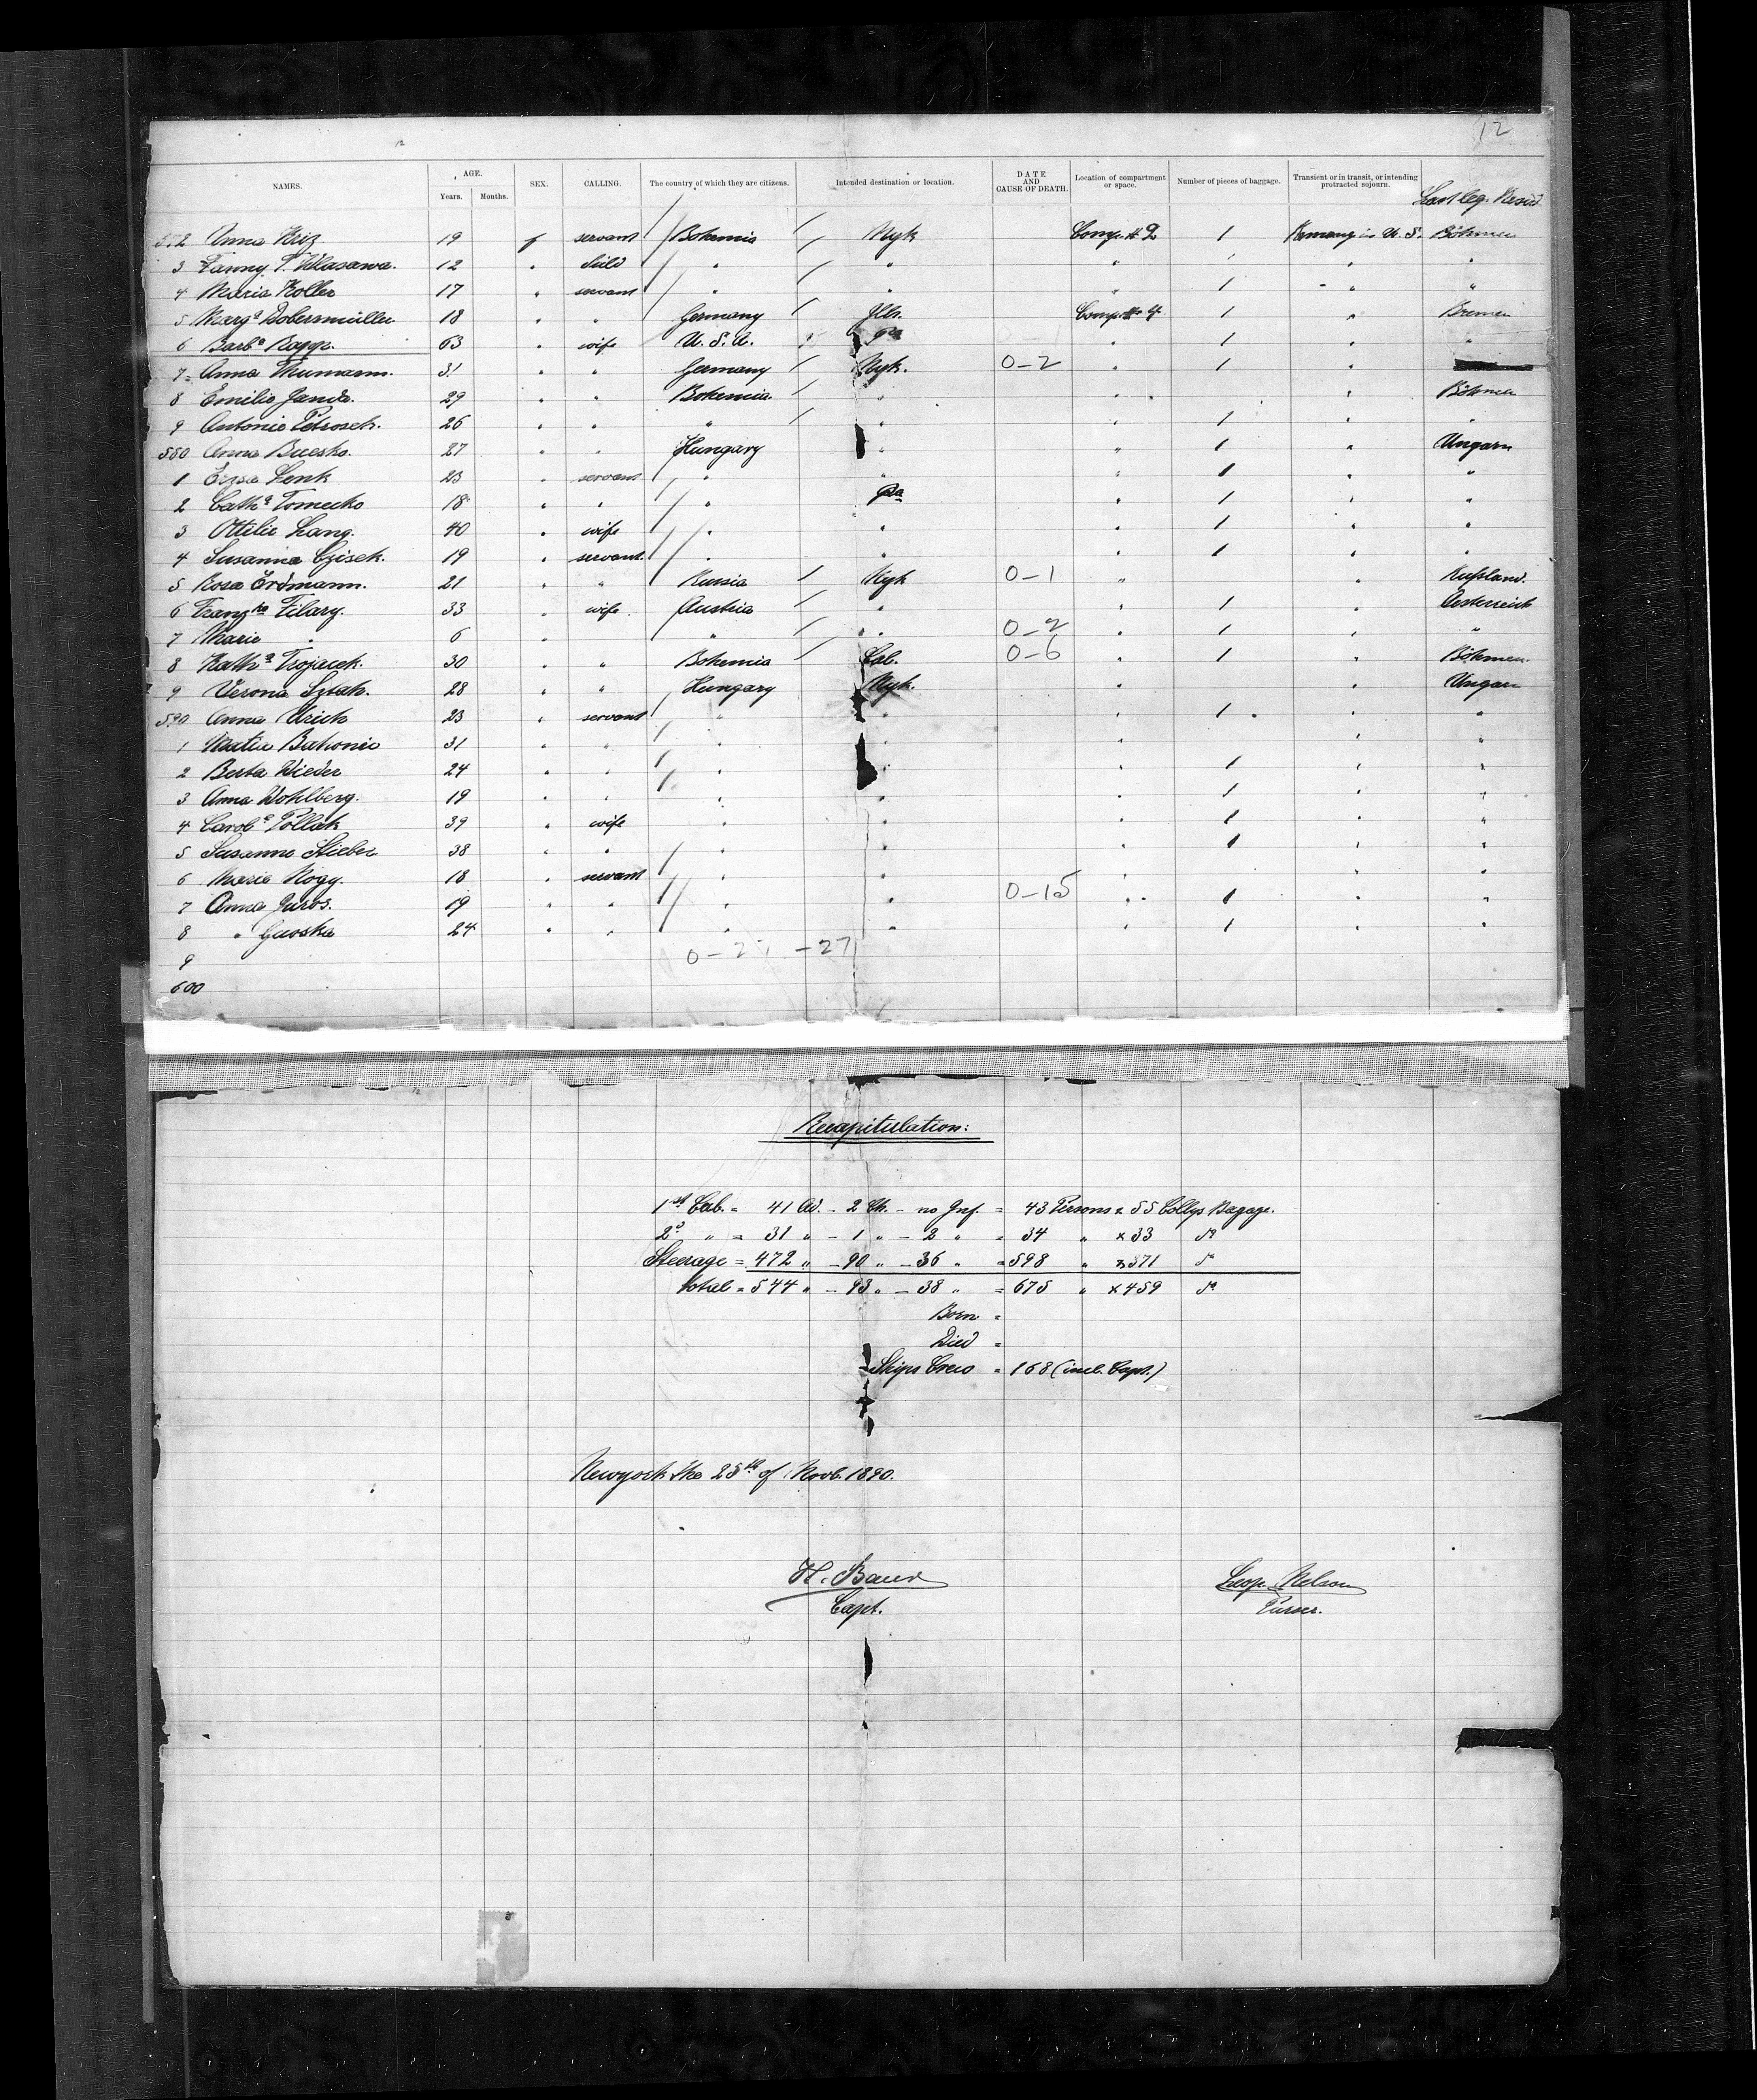 12
NAMES. AGE. Years. Months. SEX. CALLING. The country of which they are citizens. Intended destination or location. DATE AND CAUSE OF DEATH. Location of compartment or space. Number of pieces of baggage. Transient or in transit, or intending protracted sojourn. Last leg. Resid.
572 Anna Kriz 19 f servant Bohemia Nyk Comp. # 2 1 Böhmen
3 Fanny 12 " child " " " 1 " "
4 Maria Koller 17 " servant " " " 1 " "
5 Marg.a Dobersmüller 18 " " Germany Ills. Comp. # 4 1 " Bremen
6 Barb.a Rapp. 63 " wife U. S. A. Pa " 1 " "
7 Anna Thumann. 31 " " Germany Nyk. 0-2 " 1 "
8 Emilie Janda. 29 " " Bohemia " " " Böhmen
9 Antonie Petrosch. 26 " " " " " 1 " "
580 Anna Buesko. 27 " " Hungary " " 1 " Ungarn
1 Erzsa Lenk 23 " servant " " " 1 " "
2 Cath.a Tomecko 18 " " " Pa " 1 " "
3 Ottilie Lang. 40 " wife " " " 1 " "
4 Susanna Czisek. 19 " servant. " " " 1 " "
5 Rosa Erdmann. 21 " " Russia Nyk 0-1 " " Rußland.
6 Franz.ka Filary. 33 " wife Austria " " 1 " Oesterreich
7 Marie " 6 " " " 0-2 " 1 " "
8 Kath.a Trojacek. 30 " " Bohemia Cal. 0-6 " 1 " Böhmen.
9 Verona Sztah. 28 " " Hungary Nyk. " " Ungarn
590 Anna Urich 23 " servant " " " 1 " "
1 Matia Bahonic 31 " " " " " "
2 Berta Wieder 24 " " " " " 1 " "
3 Anna Wohlberg. 19 " " " " " 1 " "
4 Carol.e Pollak 39 " wife " " " 1 " "
5 Susanne Stieber 38 " " " " " 1 " "
6 Marie Nogy. 18 " servant " " " " "
7 Anna Juros. 19 " " " " 0-15 " 1 " "
8 " Gavoska 24 " " " " " 1 " "
9 0-27 -27
600
Recapitulation:
1st Cab. = 41 Ad. - 2 Ch. - no Inf. = 43 Persons x 55 Collys Bagage.
2d " = 31 " - 1 " - 2 " = 34 " x 33 do
Steerage = 472 " - 90 " - 36 " = 598 " x 371 do
total = 544 " - 93 " - 38 " = 675 " x 459 do
Born =
Died =
Ships Crew = 168 (incl. Capt.)
Newyork the 25th of Novb. 1890.
H. Baur Leop. Nelson
Capt. Purser.